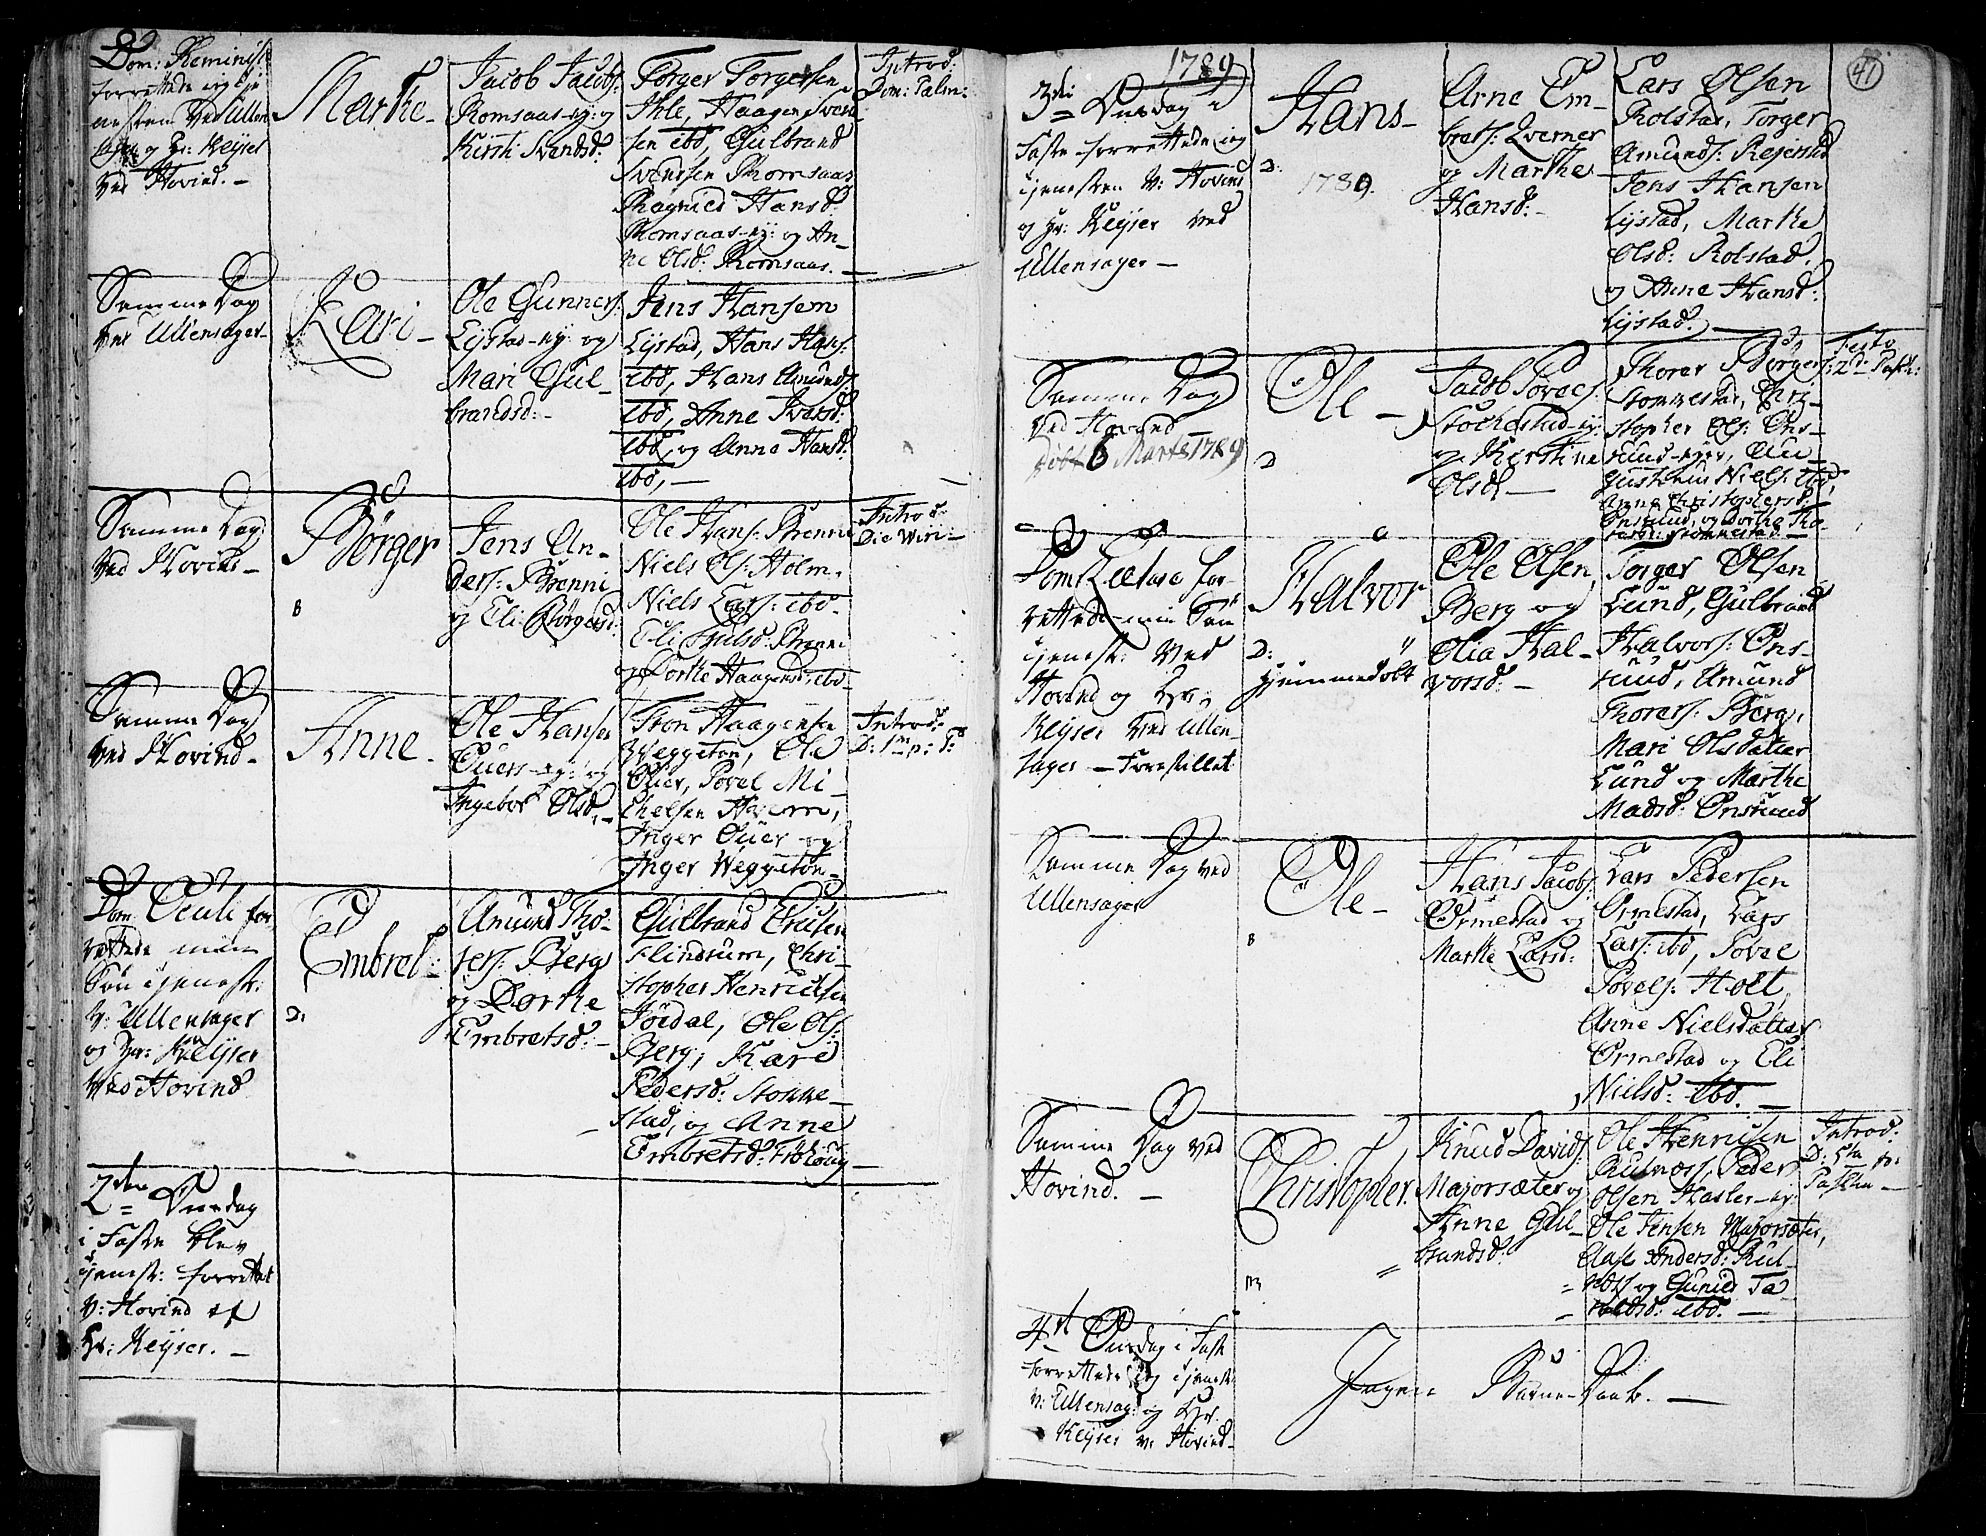 Dom: Reminisc
forrettede ieg tje
nesten ved Ullen
og Hr: Keyser
ved Hovind. –
Marthe –
Jacob Jacobs:
Romsaas-ey: og
Kirsti Svendsd:
Torger Torgersen
Ihle, Haagen Svend
sen ibd, Gulbrand
Svendsen Romsaas
Ragnild Hansd:
Romsaas-ey: og An-
ne Olsd: Romsaas. –
Introd:
Dom: Palm:
Samme Dag
ved Ullensager –
Kari –
Ole Gunners:
Lystad-ey: og
Mari Gul-
brandsd: –
Jens Hansen
Lystad, Hans Hans:
ibd, Hans Amunds:
ibd, Anne Ivarsd:
ibd, og Anne Hansd:
ibd, –
Samme Dag
ved Hovind –
Børger
B
Jens An-
ders: Brenni
og Eli Børgersd:
Ole Hans: Brenni
Niels Ols: Holm,
Niels Lars: ibd.
Eli Nilsd: Brenni
og Dorthe Haagensd: ibd –
Introd:
Die Viri: –
Samme Dag
ved Hovind –
Anne –
Ole Hansen
Ouers-ey: og
Ingebor Olsd: –
Tron Haagensen
Weggeton, Ole
Ouer, Povel Mi-
chelsen Hovem,
Inger Ouer og
Inger Weggeton –
Introd:
D: 1m p: T:
Dom: Oculi for-
rettede min
Søn tjenest:
V: Ullensager
og Hr: Keyser
ved Hovind
Embret –
D:
Amund Tho-
rers: Berg
og Dorthe
Embretsd: –
Gulbrand Trulsen
Flindrum, Chri-
stopher Henrichsen
Jødal, Ole Ols:
Berg, Kare
Pedersd: Stokke-
stad, og Anne
Embretsd: Froloug –
2den Onsdag
i Faste blev
tjenest: forrettet
V: Hovind af
Hr: Keyser. –
1789
47
3die Onsdag i
Faste forrettede ieg
tjenesten V: Hovind
og Hr: Keyser ved
Ullensager –
Hans –
D:
1789.
Arne Em-
brets: Qverner
og Marthe
Hansd: –
Lars Olsen
Rolstad, Torger
Amunds: Rejerstad
Jens Hansen
Lystad, Marthe
Olsd: Rolstad,
og Anne Hansd:
Lystad. –
Samme Dag
ved Hovind
født 6 Marts 1789
Ole –
D
Jacob Povels:
Stockestad-ey:
og Kirstine
Olsd: –
Thorer Børgers:
Stommestad, Chri-
stopher Ols: Ons-
rud-eyer, Au-
gustinus Niels: ibd,
Anne Christophersd:
Onsrud, og Dorthe Tho-
rersd: Stommestad –
Festo
2d Pasch:
Dom: Lætare for-
rettede min Søn
tjenest: ved
Hovind og Hr:
Keyser ved Ullen-
sager – Forestillet
Halvor
D:
hjemmedøbt
Ole Olsen
Berg og
Olia Hal-
vorsd: –
Torger Olsen
Lund, Gulbrand
Halvors: Ons-
rud, Amund
Thorers: Berg,
Mari Olsdatter
Lund og Marthe
Madsd: Onsrud
Samme Dag ved
Ullensager
Ole –
B
Hans Jacobs:
Ormestad og
Marthe Larsd:
Lars Pedersen
Ormestad, Lars
Lars: ibd, Povel
Povels: Holt,
Anne Nielsdatter
Ormestad og Eli
Nielsd: ibd. –
Samme Dag ved
Hovind. –
Christopher.
M
Knud Davids:
Majorsæter og
Anne Gul-
brandsd:
Ole Henrichsen
Kulnæss, Peder
Olsen Hasler-ey:
Ole Jensen Majorsæter,
Aase Andersd: Kul-
næss og Gunild Ta-
raldsd: ibd. –
Introd:
D: 5ta p:
Paschæ –
4de Onsdag i Faste
forrettede ieg tjenest:
V: Ullensag: og Hr.
Keyser v: Hovind –
Ingen Børne-Daab. –